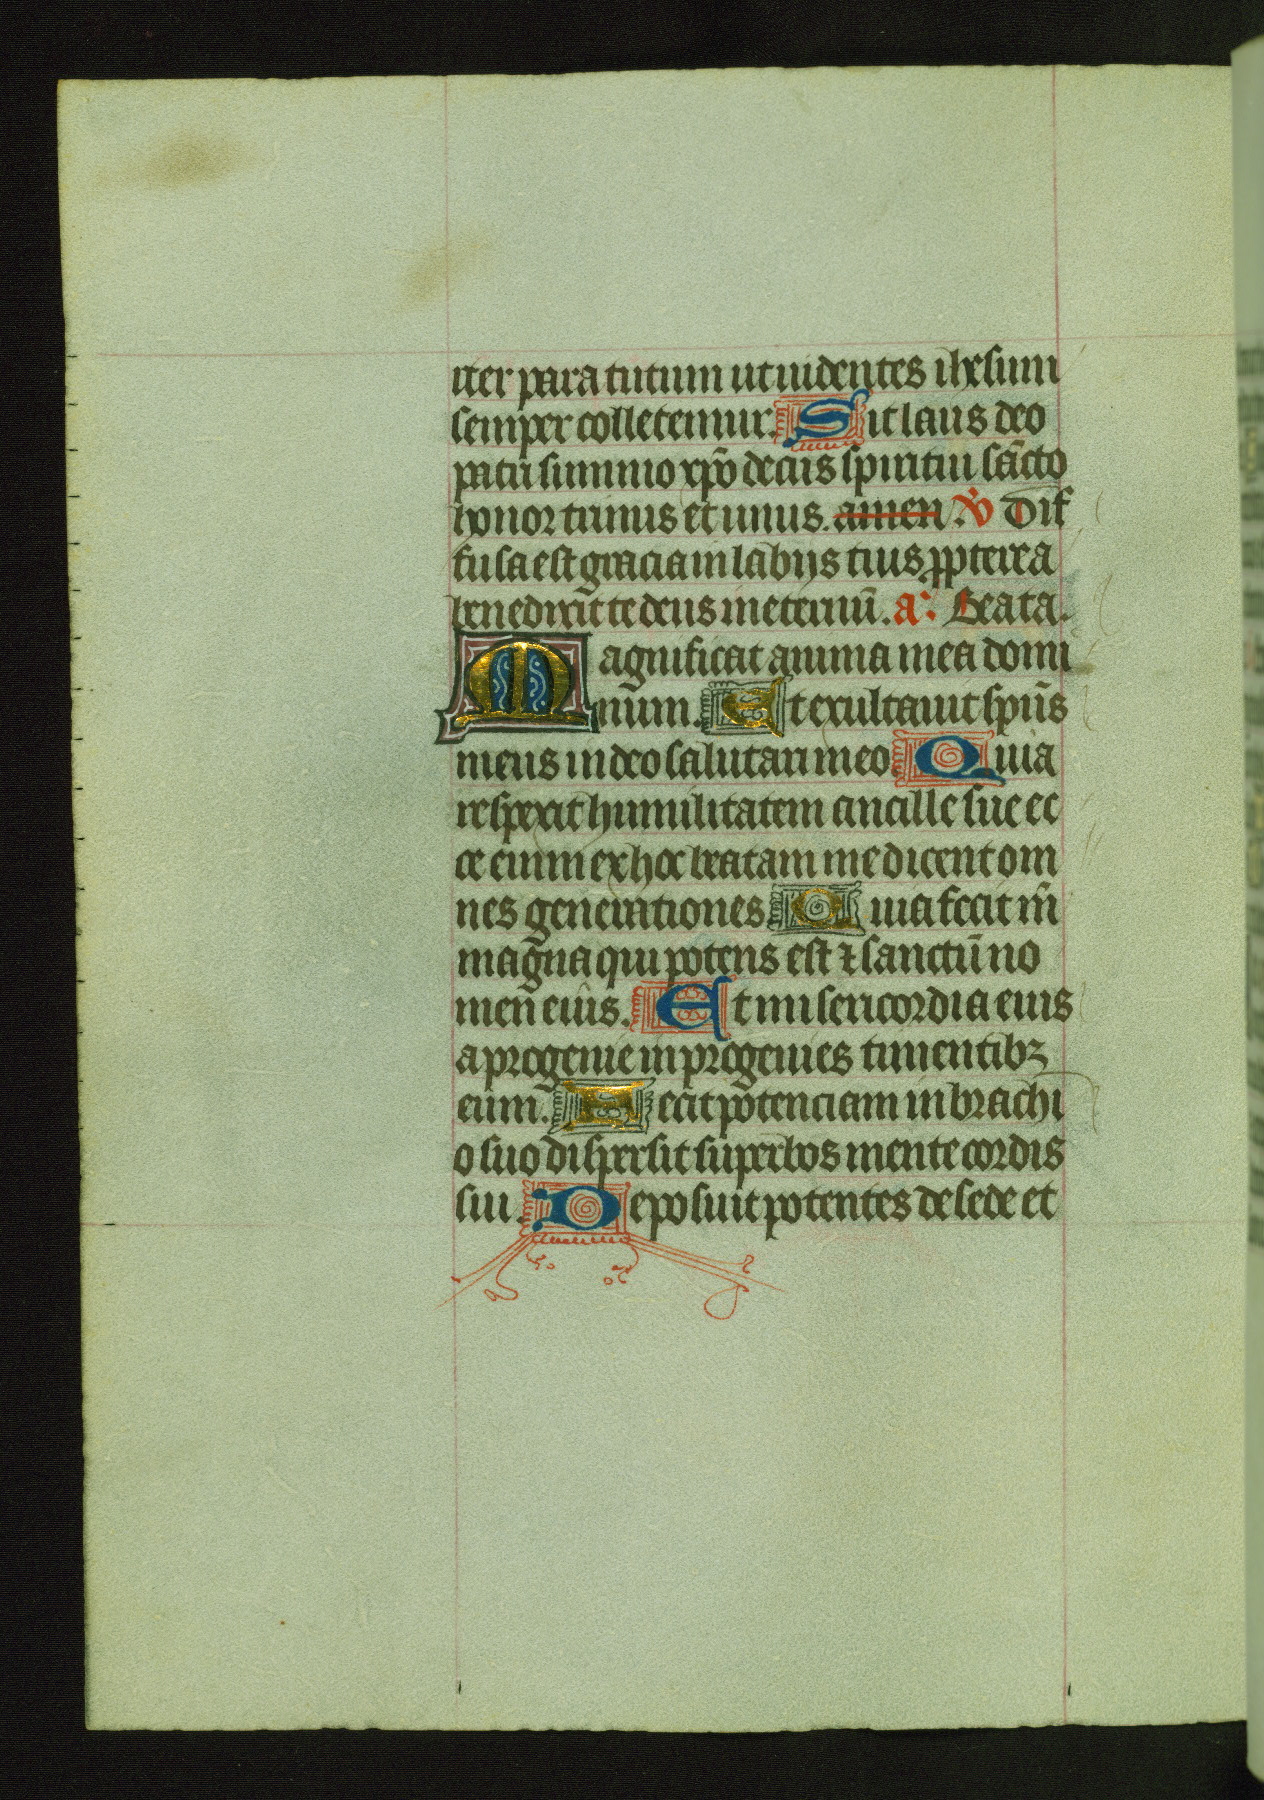 iter para tutum ut uidentes ihesum
semper colletemur. Sit laus deo
patri summo xpo decus spiritui sacto
honor trinus et unus. amen. V Dif
fusa est gracia in labijs tuis ppterea
benedixit te deus in eternū. a: Beata.
Magnificat anima mea domi
num. Et exultauit spūs
meus in deo salutari meo Quia
respexit humilitatem ancille sue ec
ce enim ex hoc beatam me dicent om
nes generationes Quia fecit m̄
magna qui potens est ⁊ sanctū no
men eius. Et misericordia eius
a progenie in progenies timentibꝫ
eum. Fecit potenciam in brachi
o suo dispersit superbos mente cordis
sui. Deposuit potentes de sede et